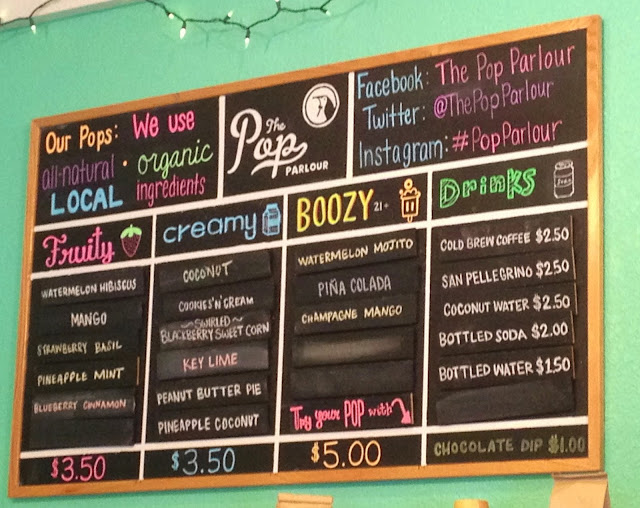 Our Pops: We use
all-natural · organic
LOCAL ingredients
The
Pop
PARLOUR
Facebook: The Pop Parlour
Twitter: @ThePopParlour
Instagram: #PopParlour
Fruity
WATERMELON HIBISCUS
MANGO
STRAWBERRY BASIL
PINEAPPLE MINT
BLUEBERRY CINNAMON
$3.50
creamy
COCONUT
COOKIES'N'CREAM
~SWIRLED~
BLACKBERRY SWEET CORN
KEY LIME
PEANUT BUTTER PIE
PINEAPPLE COCONUT
$3.50
BOOZY 21+
WATERMELON MOJITO
PIÑA COLADA
CHAMPAGNE MANGO
Try your POP with
$5.00
Drinks
COLD BREW COFFEE $2.50
SAN PELLEGRINO $2.50
COCONUT WATER $2.50
BOTTLED SODA $2.00
BOTTLED WATER $1.50
CHOCOLATE DIP $1.00